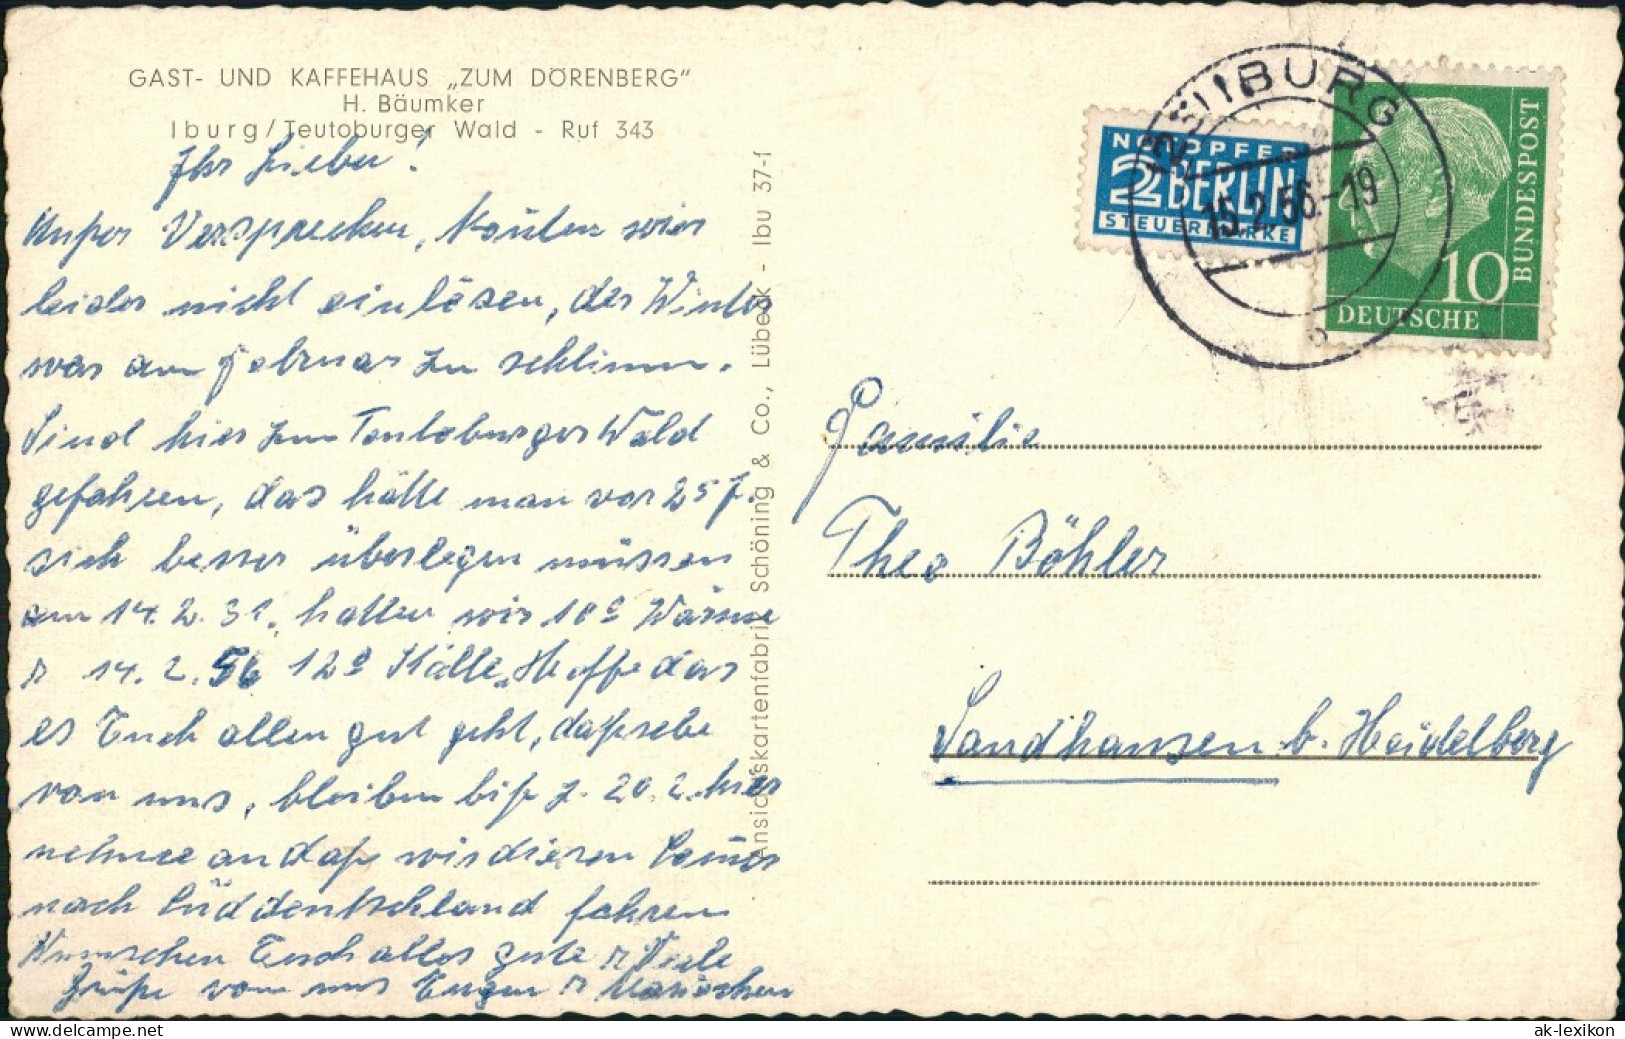 GAST- UND KAFFEHAUS „ZUM DÖRENBERG"
H. Bäumker
Iburg/Teutoburger Wald - Ruf 343
Ihr Lieben!
Unser Versprechen, konnten wir
leider nicht einlösen, der Winter
war am Februar zu schlimm.
Sind hier zum Teutoburger Wald
gefahren, das hätte man vor 25 J.
sich besser überlegen müssen
am 14. 2. 31. hatten wir 10° Wärme
14. 2. 56 12° Kälte. Hoffe das
es Euch allen gut geht, dasselbe
von uns, bleiben bis z. 20. 2. hier
nehme an daß wir diesen Sommer
nach Süddeutschland fahren
Wünschen Euch alles gute u Viele
Grüße von uns Eugen u
Ansichtskartenfabrik Schöning & Co., Lübeck - Ibu 37-f
NOTOPFER
2 BERLIN
STEUERMARKE
IBURG
15.2.56.-19
10
DEUTSCHE
BUNDESPOST
Familie
Theo Böhler
Sandhausen b. Heidelberg
ak-lexikon
delcampe.net